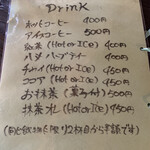 Drink
ホットコーヒー 400円
アイスコーヒー 500円
紅茶 (Hot or Ice) 450円
ハーブティー 400円
(Hot or Ice) 450円
ココア (Hot or Ice) 450円
お抹茶 (菓子付) 500円
抹茶オレ (Hot or Ice) 450円